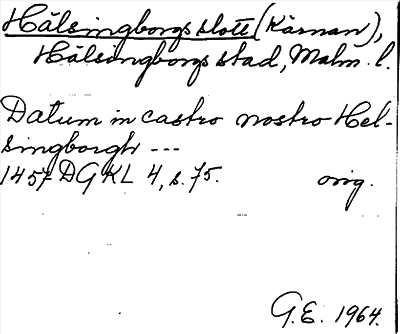 Hälsingborgs slott (Kärnan),
Hälsingborgs stad, Malm. l.
Datum in castro nostro Hel-
singborgh ---
1457 DGKL 4, s. 75. orig.
G.E. 1964.